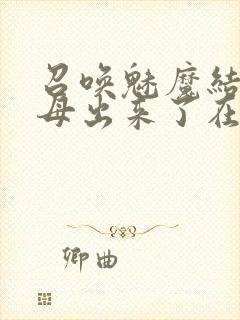 召唤魅魔结
母出来了在
卿曲